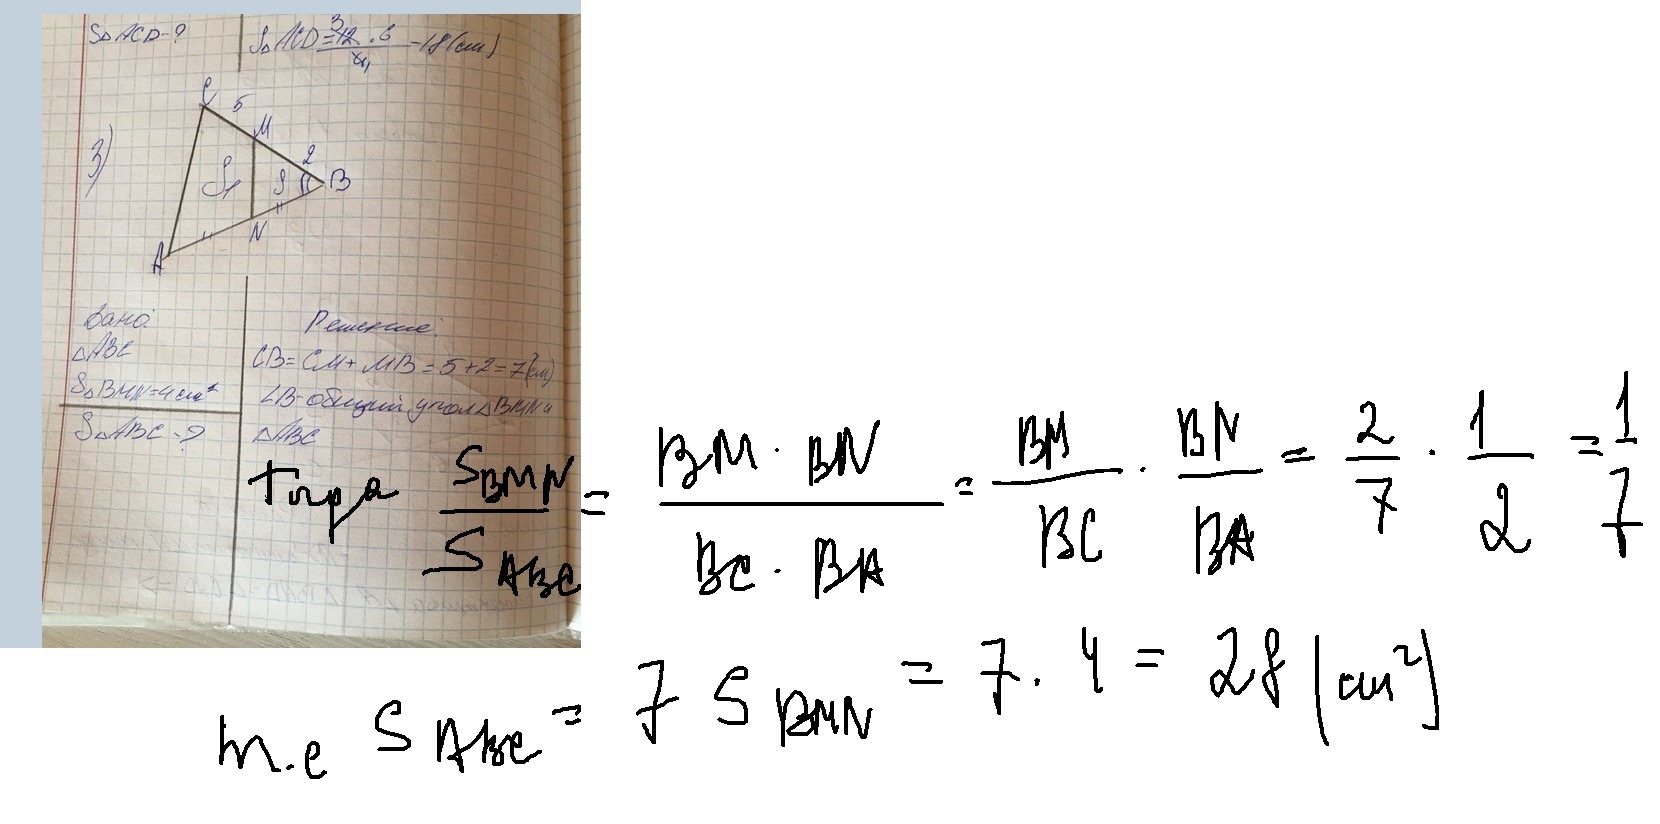 S△ACD-?
S△ACD = 3 12 · 6 / 4 1 = 18 (см)
3)
C 5
M
2
S1 S B
N
A
Дано:
△ABC
S△BMN=4см²
S△ABC-?
Решение:
CB=CM+MB=5+2=7(см)
∠B-общий угол △BMN и
△ABC
Тогда S BMN / S ABC = BM · BN / BC · BA = BM / BC · BN / BA = 2/7 · 1/2 = 1/7
т.е S ABC = 7 S BMN = 7 · 4 = 28 (см²)